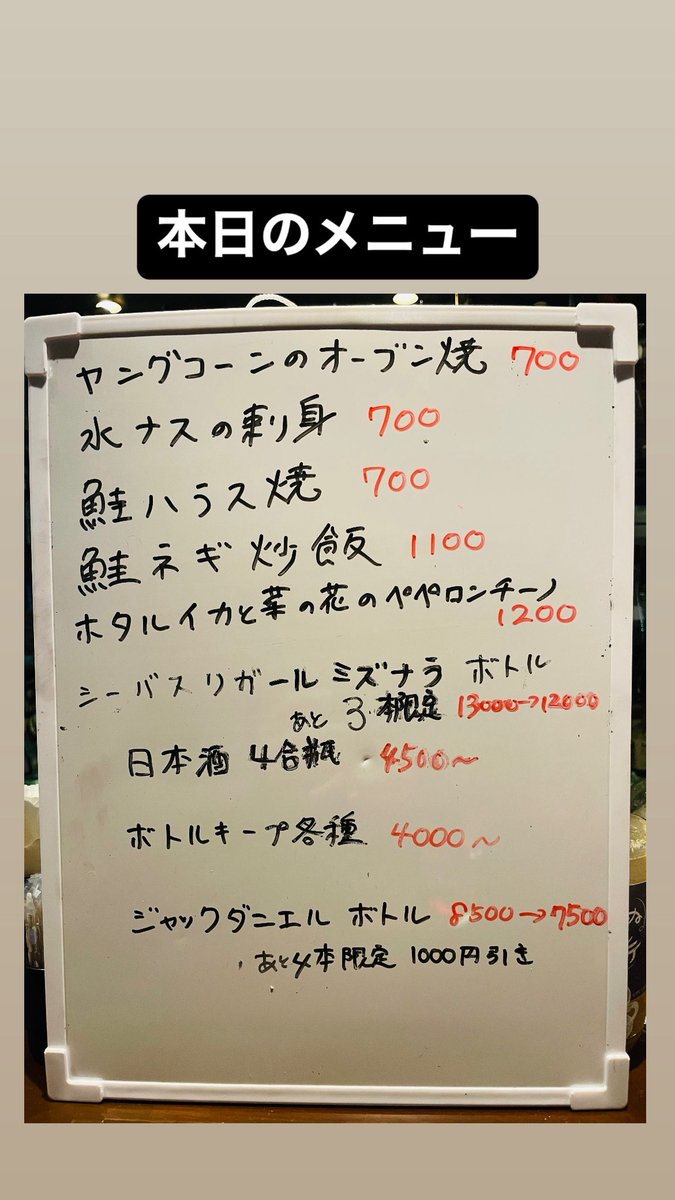 本日のメニュー
ヤングコーンのオーブン焼 700
水ナスの刺身 700
鮭ハラス焼 700
鮭ネギ炒飯 1100
ホタルイカと菜の花のペペロンチーノ
1200
シーバスリガール ミズナラ ボトル
あと 3本限定 13000→12000
日本酒 4合瓶 4500〜
ボトルキープ各種 4000〜
ジャックダニエル ボトル 8500→7500
あと4本限定 1000円引き